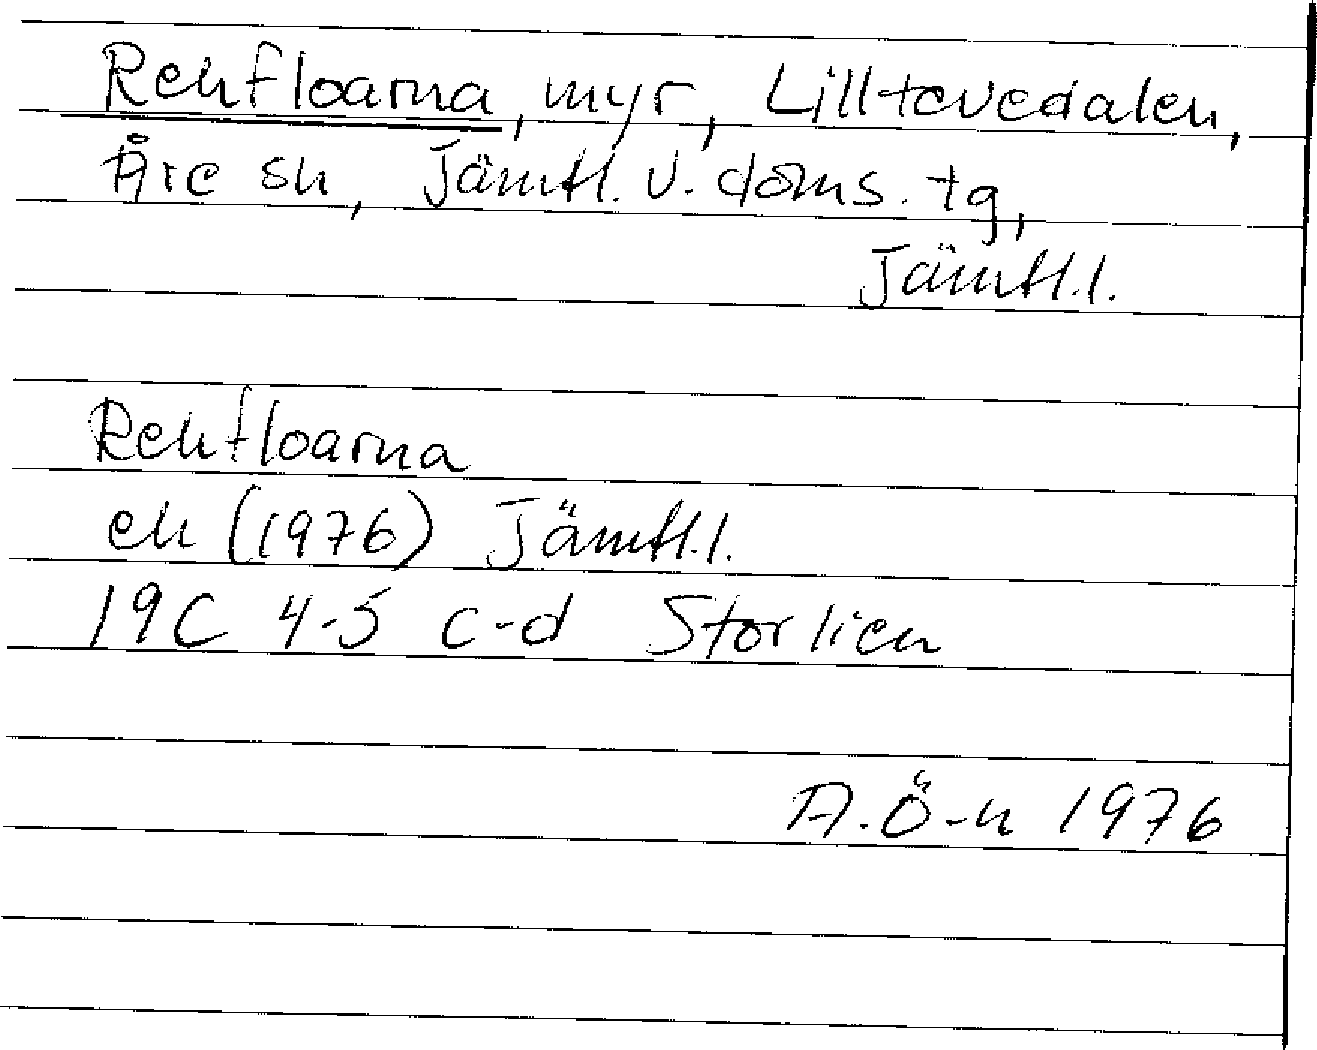 Renfloarna, myr, Lilltevedalen,
Åre sn, Jämtl. v. doms. tg,
Jämtl.l.
Renfloarna
ek (1976) Jämtl.l.
19C 4-5 c-d Storlien
A.Ö-n 1976